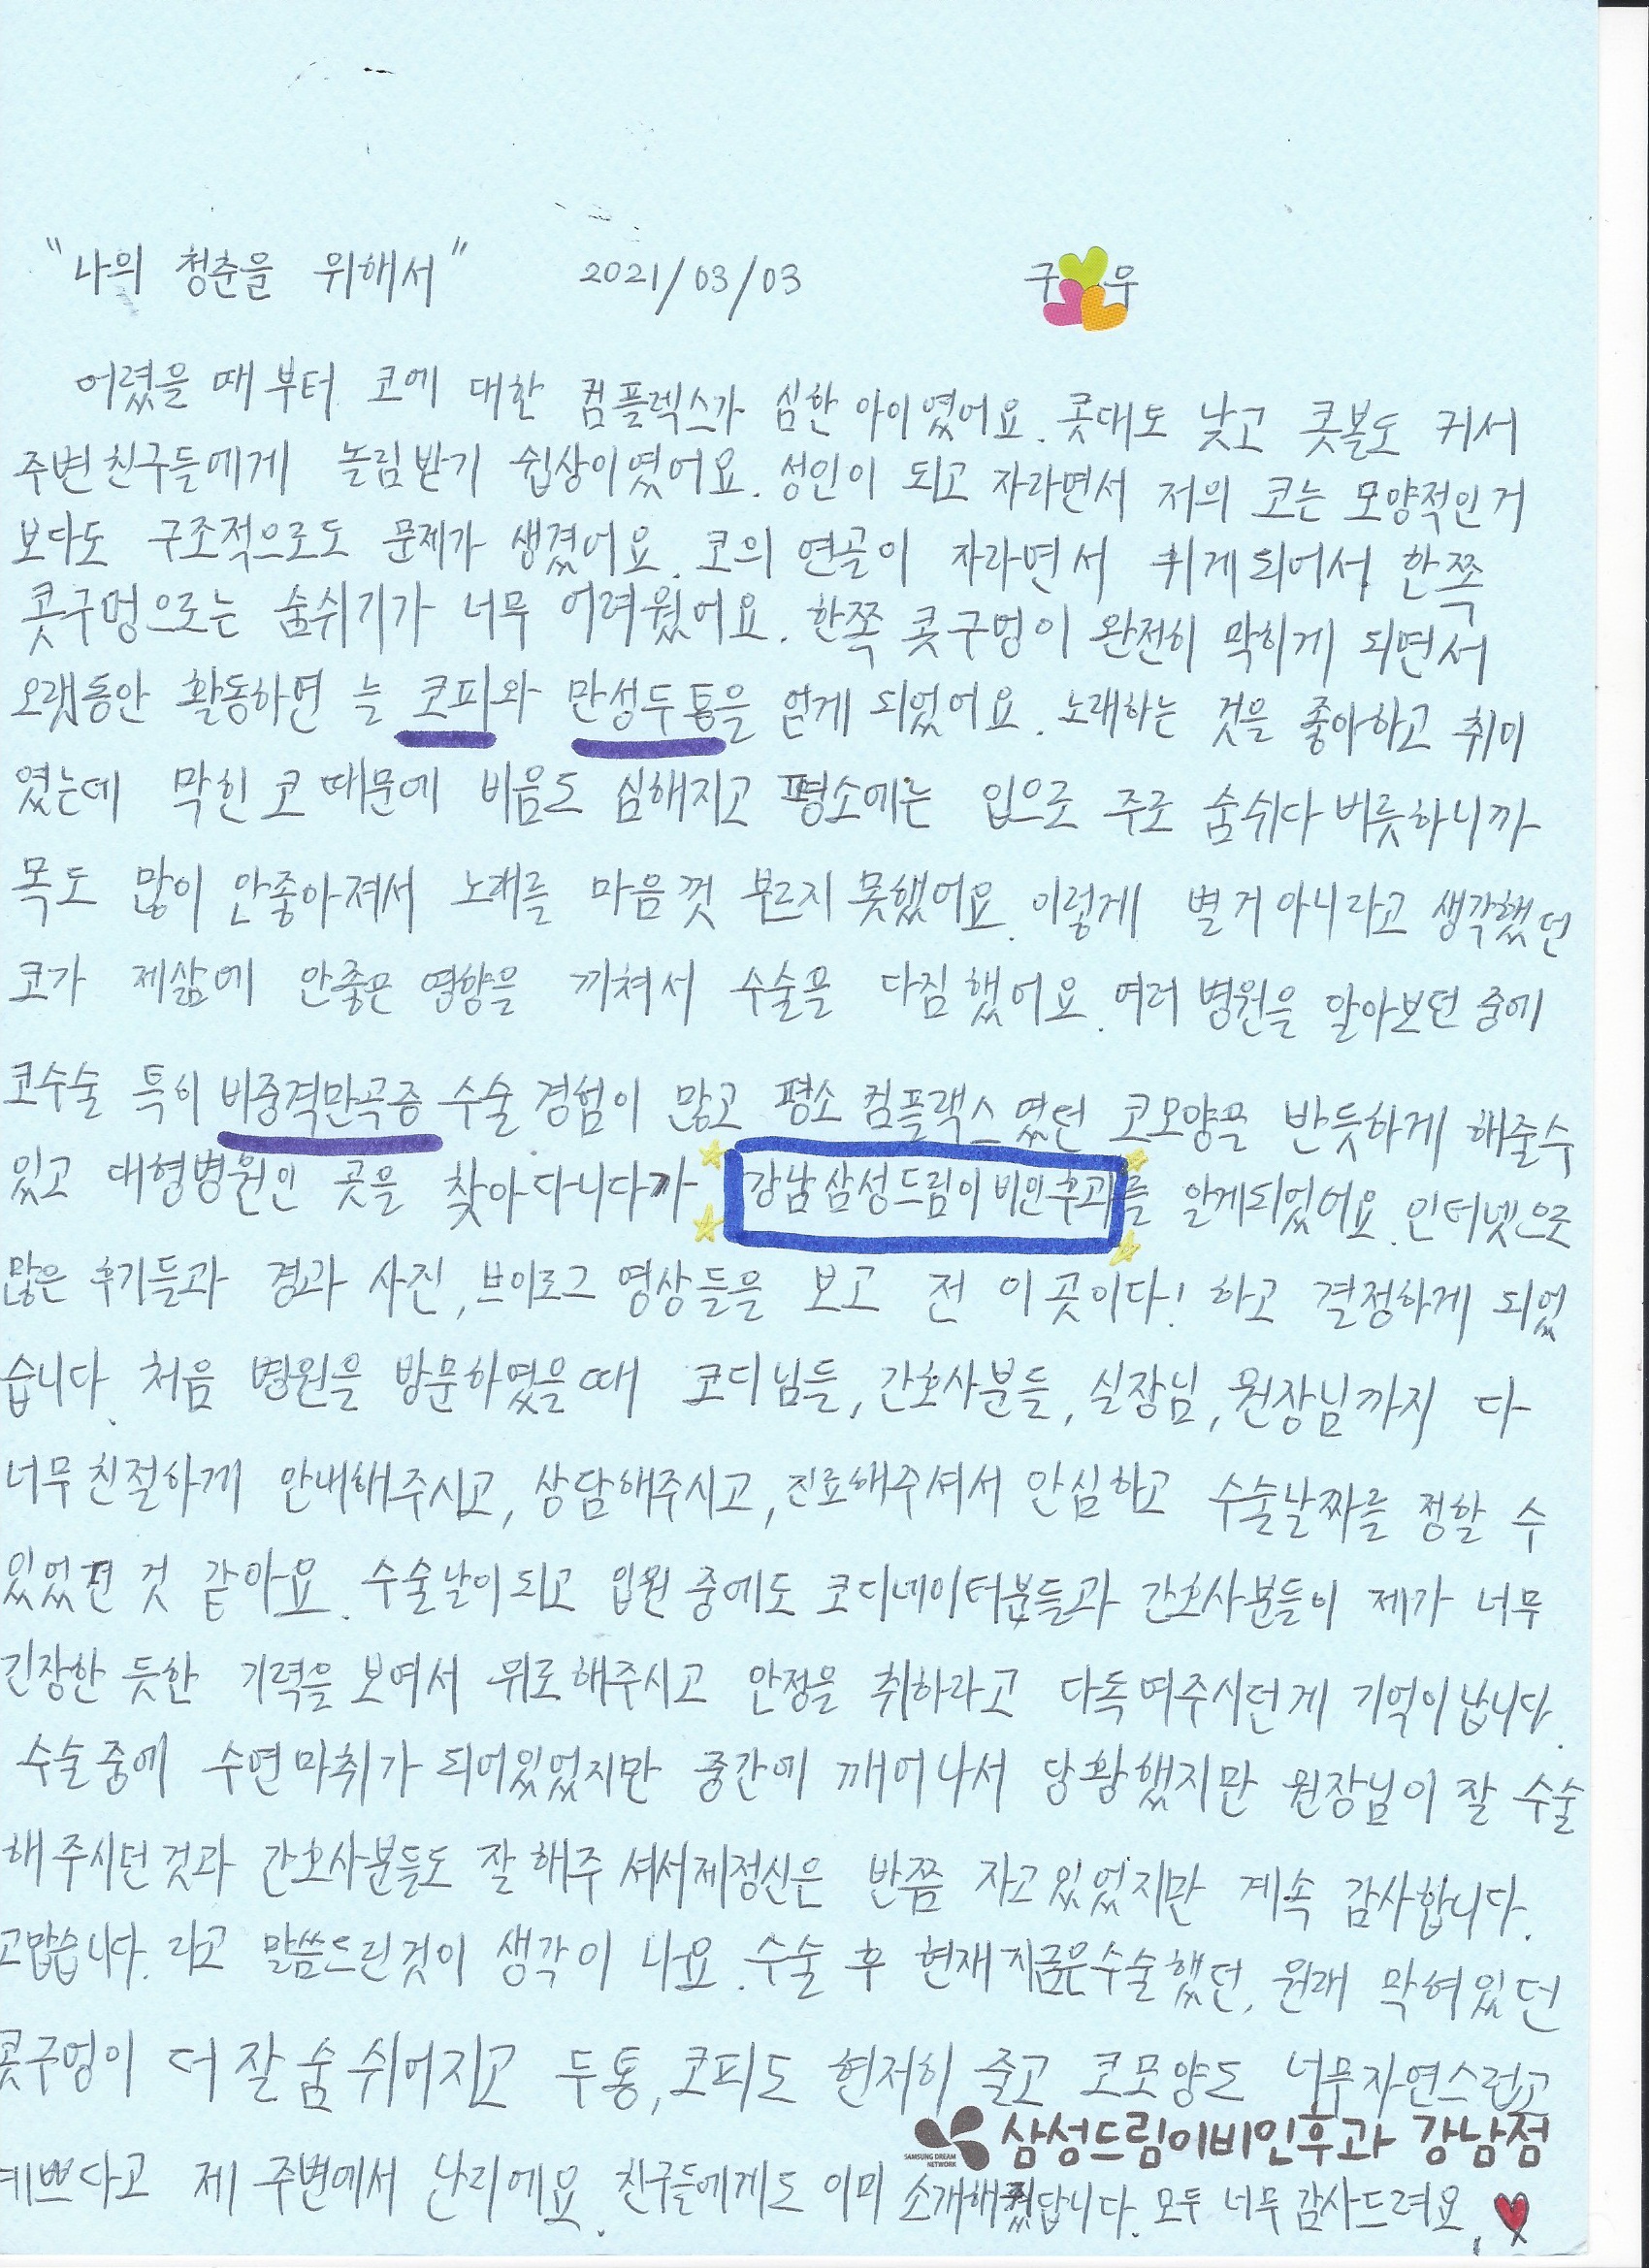 "나의 청춘을 위해서" 2021/03/03 구 우
어렸을 때부터 코에 대한 컴플렉스가 심한 아이였어요. 콧대도 낮고 콧볼도 커서
주변친구들에게 놀림받기 쉽상이였어요. 성인이 되고 자라면서 저의 코는 모양적인거
보다도 구조적으로도 문제가 생겼어요. 코의 연골이 자라면서 휘게되어서 한쪽
콧구멍으로는 숨쉬기가 너무 어려웠어요. 한쪽 콧구멍이 완전히 막히게 되면서
오랫동안 활동하면 늘 코피와 만성두통을 얻게 되었어요. 노래하는 것을 좋아하고 취미
였는데 막힌 코 때문에 비음도 심해지고 평소에는 입으로 주로 숨쉬다 버릇하니까
목도 많이 안좋아져서 노래를 마음껏 부르지 못했어요. 이렇게 별거 아니라고 생각했던
코가 제삶에 안좋은 영향을 끼쳐서 수술을 다짐했어요. 여러 병원을 알아보던 중에
코수술 특히 비중격만곡증 수술 경험이 많고 평소 컴플랙스였던 코모양을 반듯하게 해줄수
있고 대형병원인 곳을 찾아다니다까 강남삼성드림이비인후과를 알게되었어요. 인터넷으로
많은 후기들과 경과 사진, 브이로그 영상들을 보고 전 이 곳이다! 하고 결정하게 되었
습니다. 처음 병원을 방문하였을때 코디님들, 간호사분들, 실장님, 원장님까지 다
너무친절하게 안내해주시고, 상담해주시고, 진료해주셔서 안심하고 수술날짜를 정할 수
있었던 것 같아요. 수술날이되고 입원 중에도 코디네이터분들과 간호사분들이 제가 너무
긴장한 듯한 기력을 보여서 위로해주시고 안정을 취하라고 다독여주시던게 기억이납니다.
수술중에 수면마취가 되어있었지만 중간에 깨어나서 당황했지만 원장님이 잘 수술
해주시던것과 간호사분들도 잘 해주셔서제정신은 반쯤 자고있었지만 계속 감사합니다.
고맙습니다. 라고 말씀드린것이 생각이 나요. 수술 후 현재지금은수술했던, 원래 막혀있던
콧구멍이 더 잘 숨 쉬어지고 두통, 코피도 현저히 줄고 코모양도 너무자연스럽고
삼성드림이비인후과 강남점
SAMSUNG DREAM NETWORK
예쁘다고 제 주변에서 난리에요. 친구들에게도 이미 소개해줬답니다. 모두 너무 감사드려요.